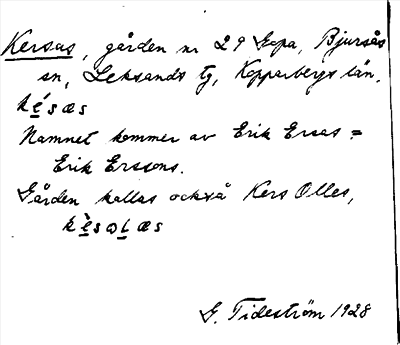 Kersas, gården nr 29 Sopa, Bjursås
sn, Leksands tg, Kopparbergs län.
késas
Namnet kommer av Erik Ersas =
Erik Erssons.
Gården kallas också Kers Olles,
kèsolas
G. Tideström 1928